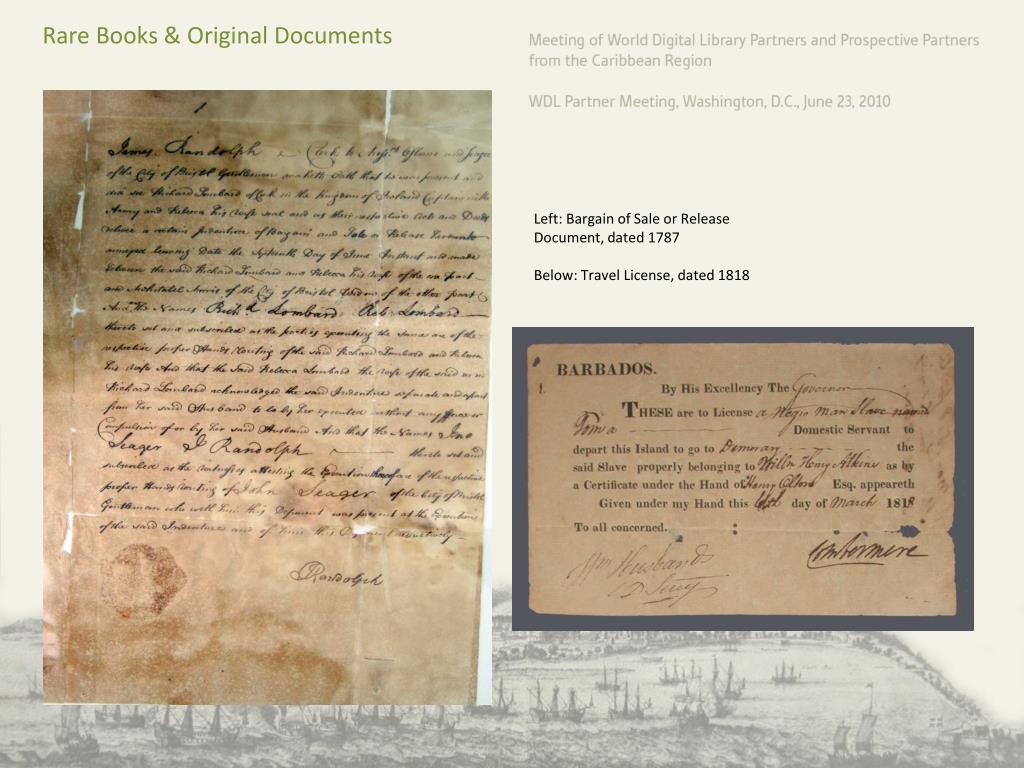 Rare Books & Original Documents
Meeting of World Digital Library Partners and Prospective Partners
from the Caribbean Region
WDL Partner Meeting, Washington, D.C., June 23, 2010
James Randolph Clerk to and
of the City of Bristol Gentleman maketh Oath that he was present and
did see Richard Lombard of Cork in the Kingdom of Ireland Captain in the
Army and Rebecca his Wife seal and as their respective Acts and Deeds
deliver a certain Indenture of Bargain and Sale or Release hereunto
annexed bearing date the Day of June Instant and made
between the said Richard Lombard and Rebecca his Wife of the one part
and of the City of Bristol of the other part
And the Names Rich.d Lombard, Reb: Lombard
thereto set and subscribed as the parties executing the same are of the
respective proper Hands Writing of the said Richard Lombard and Rebecca
his Wife And that the said Rebecca Lombard the Wife of the said
Richard Lombard acknowledged the said Indenture separate and apart
from her said Husband to be by her executed without any
Compulsion of or by her said Husband And that the Names Jno
Seager J Randolph thereto set and
subscribed as the Witnesses attesting the Execution thereof are of the respective
proper Hands Writing of John Seager of the City of Bristol
Gentleman who with him this Deponent was present at the Execution
of the said Indenture and of him this Deponent
J Randolph
Left: Bargain of Sale or Release
Document, dated 1787
Below: Travel License, dated 1818
BARBADOS.
1.
By His Excellency The Governor
THESE are to License a Negro Man Slave named
Tom a Domestic Servant to
depart this Island to go to Demerary the
said Slave properly belonging to Willm Henry Atkins as by
a Certificate under the Hand of Henry Esq. appeareth
Given under my Hand this day of March 1818
To all concerned.
Combermere
Wm Husbands
D. Secy